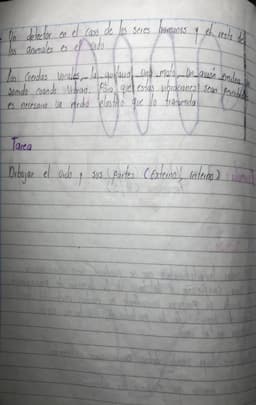 Un detector en el caso de los seres humanos y el resto de
los animales es el oido
Las Cuerdas Vocales, la guitarra, una moto, un ave emiten
sonido cuando vibran. Para que esas vibraciones sean
es necesario un medio elastico que lo transmita
Tarea
Dibujar el oido y sus partes (Externo, interno)